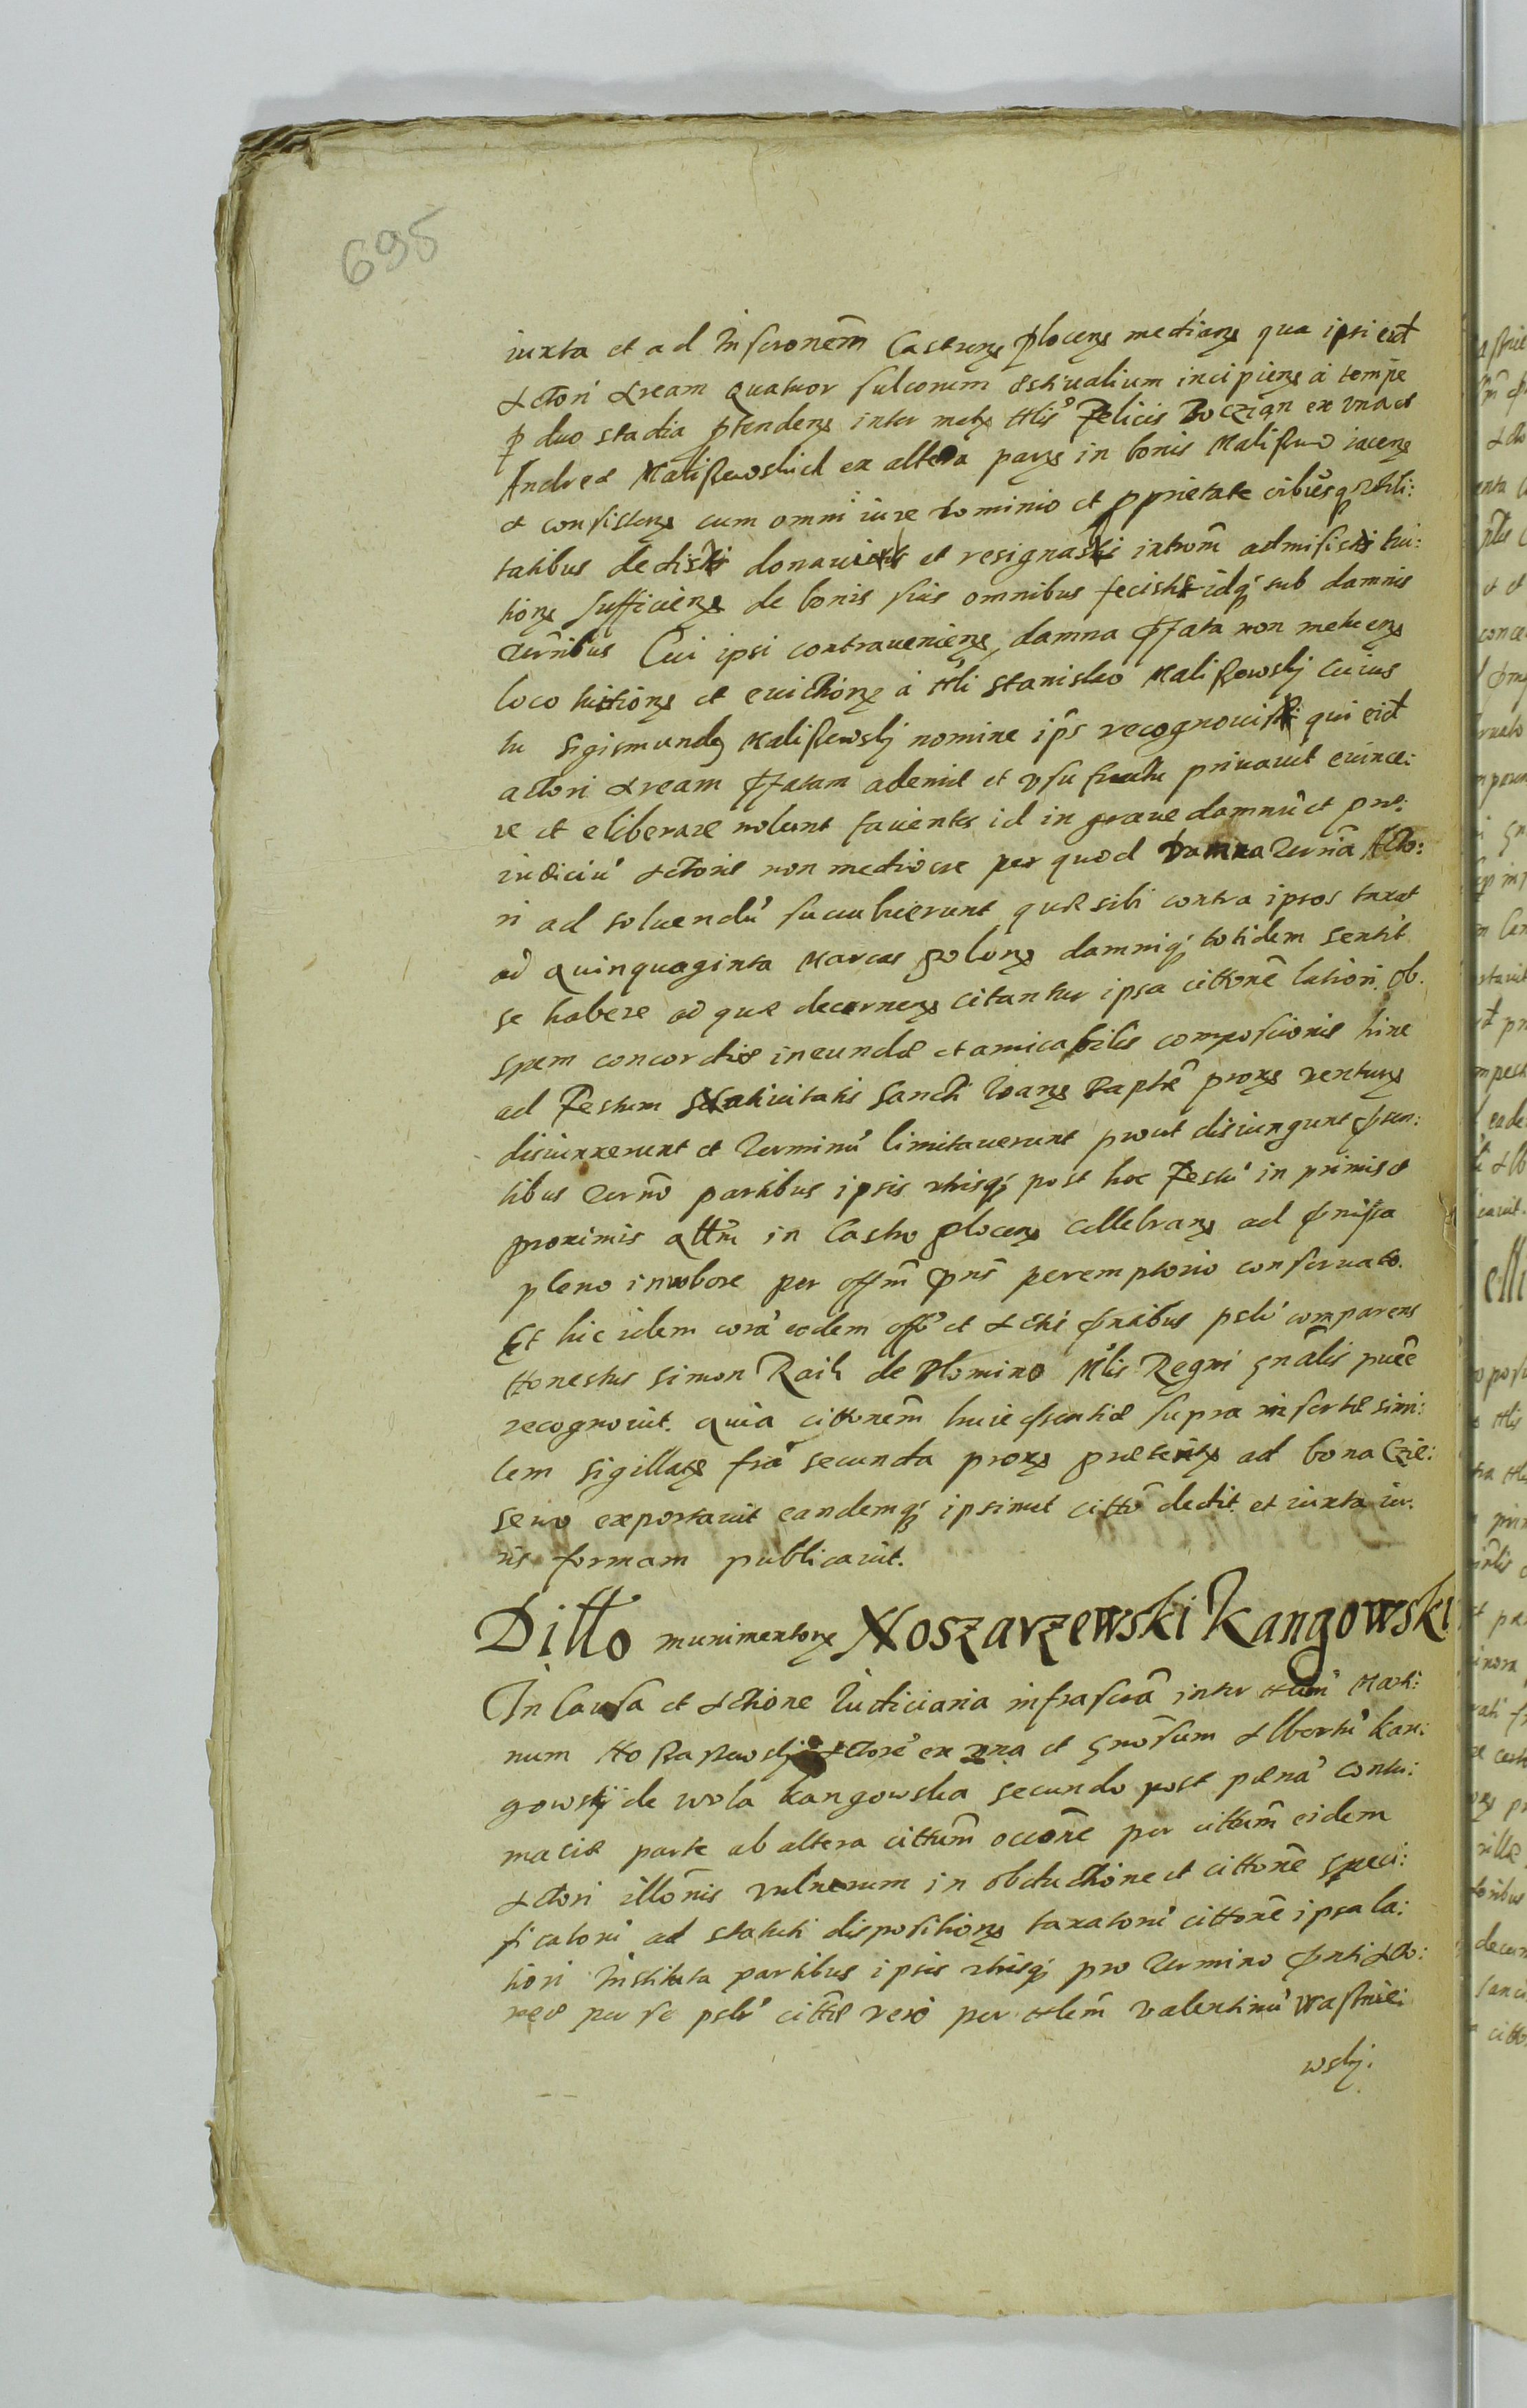 695
iuxta et ad Inscronem̃ Castren̄ plocen̄ median̄ qua ipsi eid̄
Actori Aream quatuor sulcorum æstiualium incipien̄ a
p duo stadia ptenden̄ inter metas Nlis Felicis ex vna et
Andreæ Maliszewskich ex altera par̄ in bonis Maliszewo iacen̄
et consisten̄ cum omni iure dominio et pprietate oibusq vtili:
tatibus dedisti donauisti et resignasti introm̃ admisisti tui:
tion̄ sufficien̄ de bonis suis omnibus fecisti idq sub damnis
terrnibus Cui ipsi contrauenien̄ damna pfata non metuen̄
loco tuition̄ et euiction̄ a Nli Stanislao Maliszowskj cuius
tu Sigismunde Maliszewskj nomine ips recognouisti qui eid̄
actori Aream pfatam ademit et vsu fructu priuauit euince:
re et eliberare nolunt facientes id in graue damnũ et præ:
iudiciũ Actoris non mediocre per quod Damna terrña Acto:
ri ad soluendũ succubuerunt quæ sibi contra ipsos taxat
ad quinquaginta Marcas polon̄ damniq totidem sentit
se habere ad quæ decernen̄ citantur ipsa cittonẽ latiori. Ob
spem concordiæ ineundæ et amicabilis composcionis hinc
ad Festum Natiuitatis Sancti Joan̄ Baptẽ prox̄ ventur̄
disiunxerunt et Terminũ limitauerunt prout disiungunt psen:
tibus terrno partibus ipsis vtrisq post hoc Festũ in primis et
proximis qttm̃ in Castro plocen̄ cellebran̄ ad pmissa
pleno in robore per offm̃ pns peremptorio conseruato.
Et hic idem corã eodem offo et Actis pntibus pslr comparens
Honestus Simon Raik de Plomino Mlis Regni gnalis puẽe
recognouit. quia cittonem̃ huic psentiæ supra insertæ simi:
lem sigillat̄ friã secunda prox̄ præterit̄ ad bona Czie:
sewo exportauit eandemq ipsimet citto dedit et iuxta iu:
ris formam publicauit.
Ditto munimentor̄ Noszarzewski Kangowski
In Causa et Actione Iudiciaria infrascrã inter Nlem Marti:
num Noszarzewskj Actorẽ ex vna et Gnosum Albertũ Kan:
gowskj de Wola Kangowska secundo post pænã contu:
maciæ parte ab altera cittum̃ occone per cittum̃ eidem
Actori illonis vulnerum in obductione et cittonẽ speci:
ficatorũ ad statuti disposition̄ taxatorũ cittonẽ ipsa la:
tiori Instituta partibus ipsis vtrisq pro Termino pnti Acto:
re per se pslr citto vero per Nlem̃ Valentinũ
wskj.